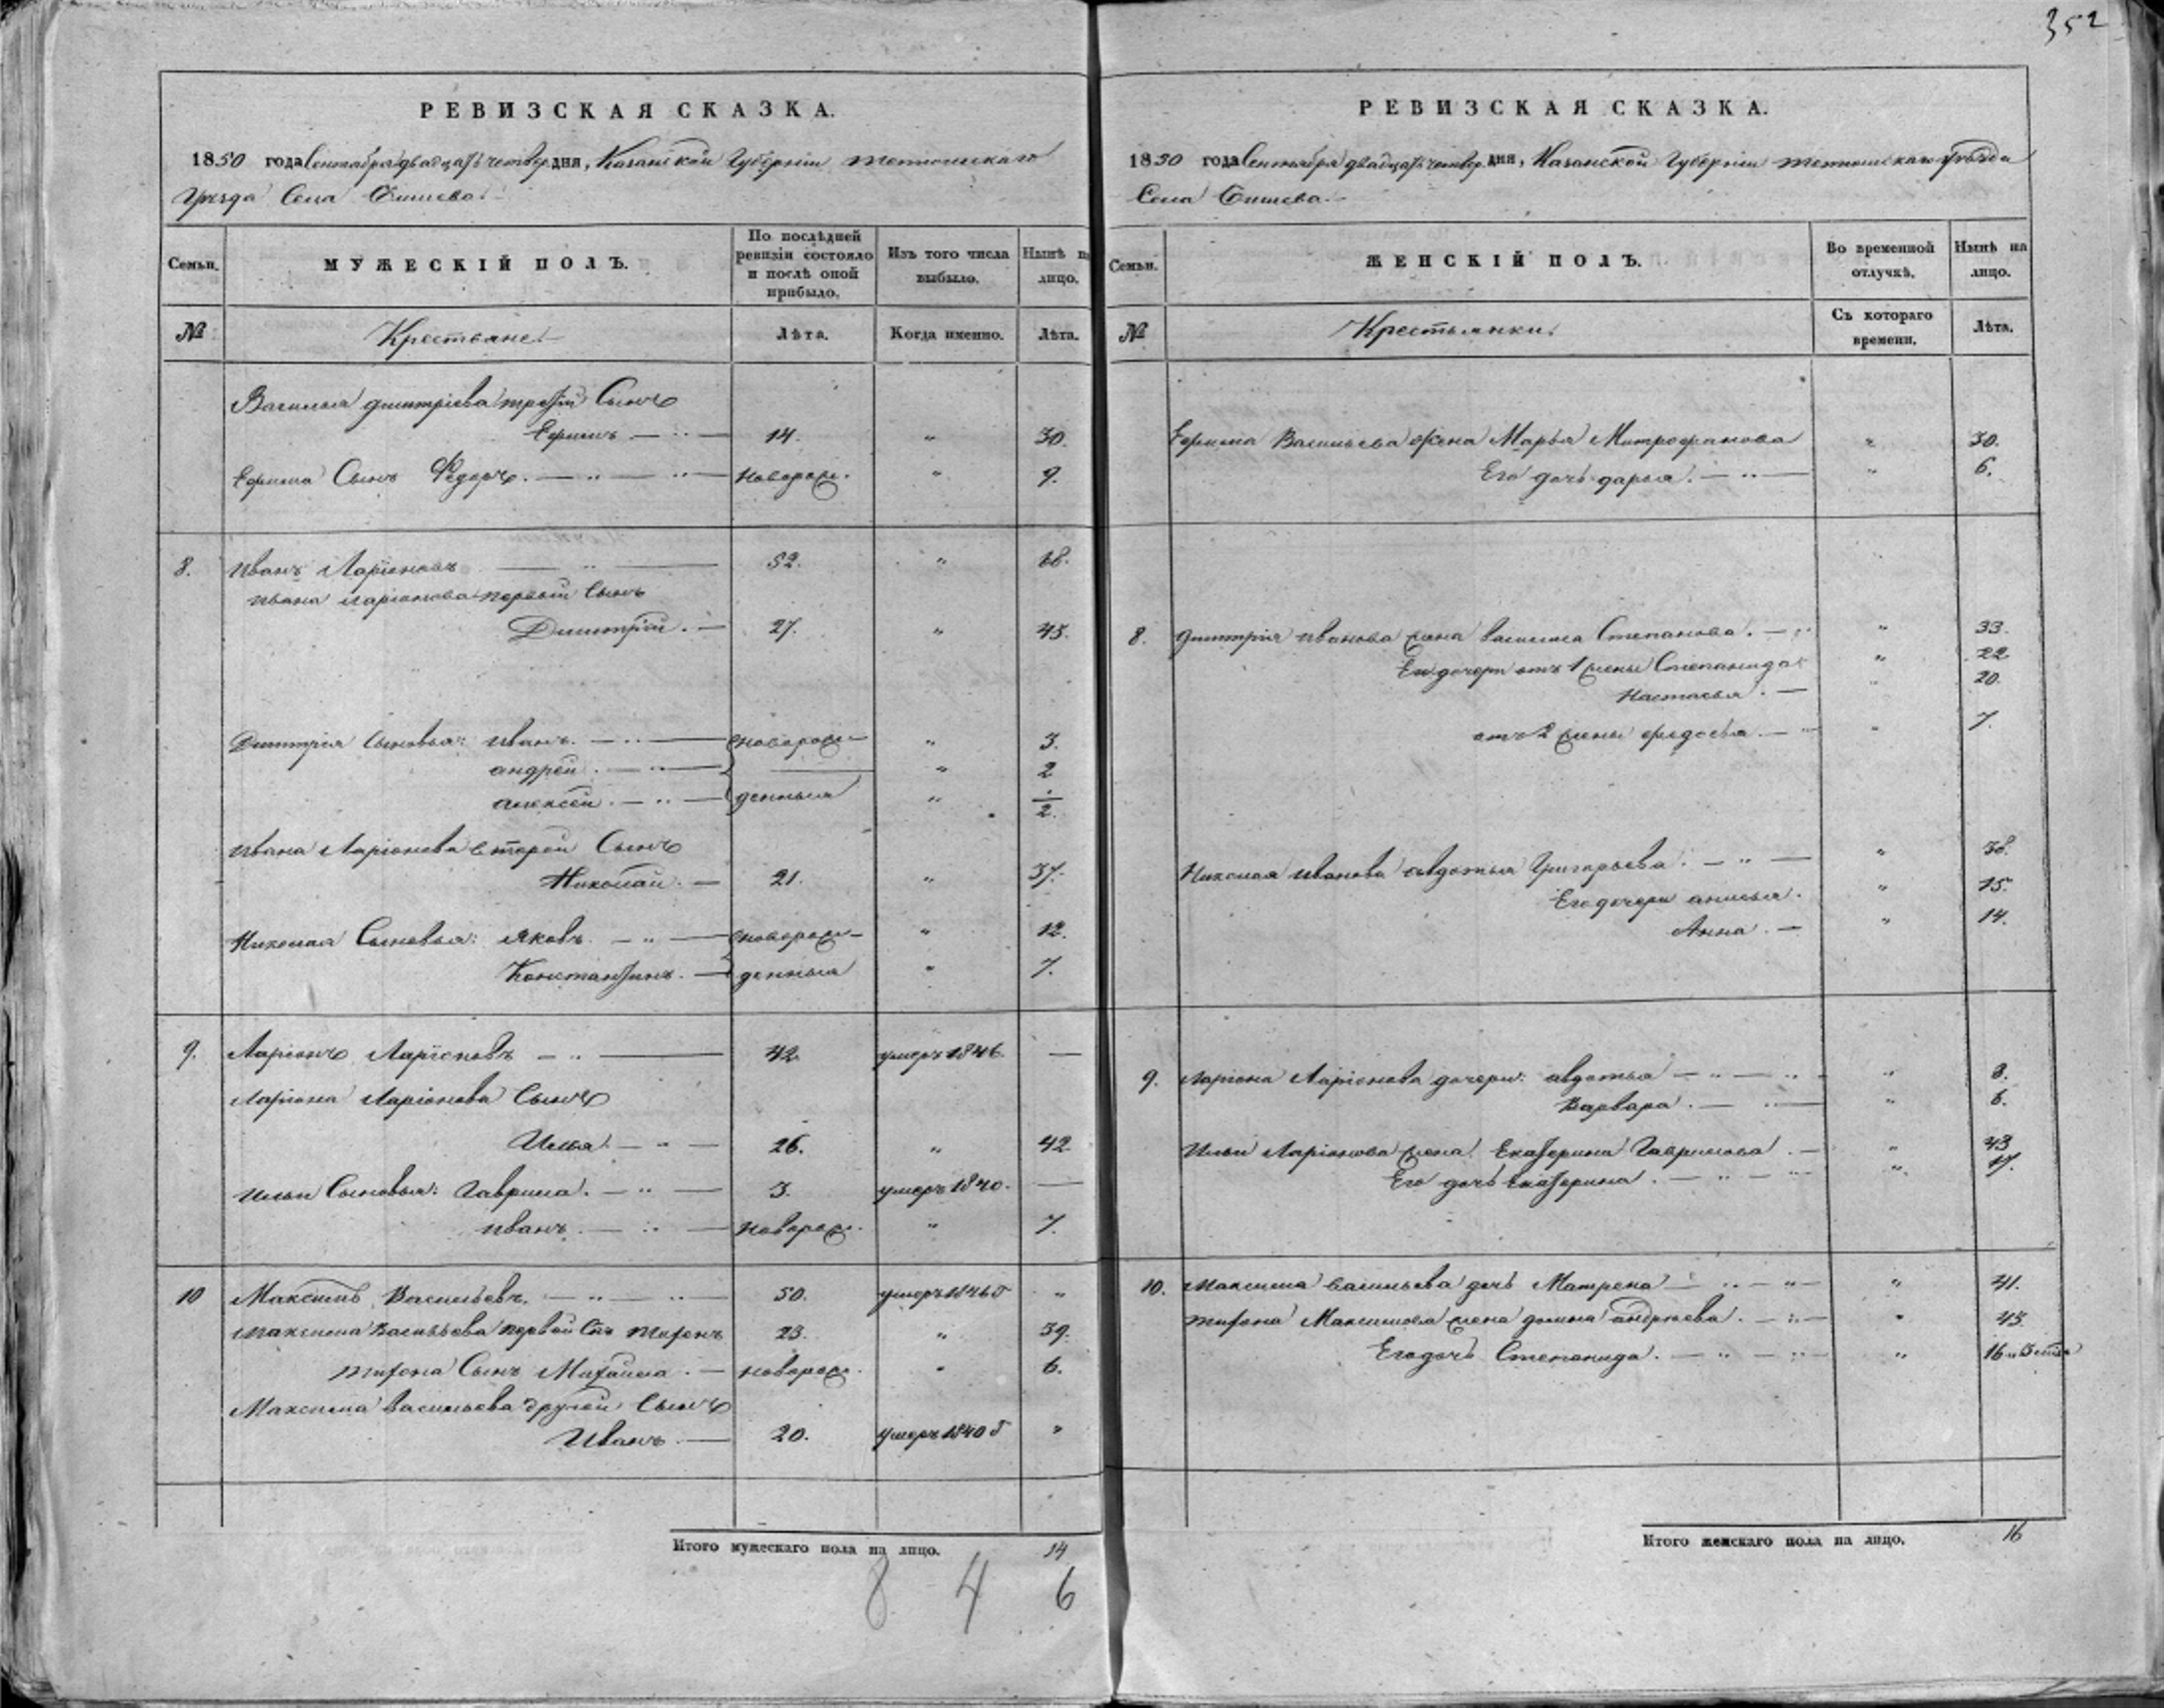 352
РЕВИЗСКАЯ СКАЗКА.
1850 года Сентября двадцать четвер. дня, Казанской Губерніи Тетюшскаго
Уезда Села
Семьи. МУЖЕСКІЙ ПОЛЪ. По послѣдней ревизіи состояло и послѣ оной прибыло. Изъ того числа выбыло. Нынѣ на лицо.
№ Крестьяне. Лѣта. Когда именно. Лѣта.
Василья Дмитріева третій Сынъ
Ефимъ 14. „ 30.
Ефима Сынъ Федоръ. новорож. „ 9.
8. Иванъ Ларіоновъ 52. „ 68.
Ивана Ларіонова первой Сынъ
Дмитрій. 27. „ 43.
Дмитрія Сыновья: Иванъ. новорож- „ 3.
андрей. „ 2
алексей. денныя „ 1/2.
Ивана Ларіонова второй Сынъ
Николай. 21. „ 37.
Николая Сыновья: Яковъ новорож- „ 12.
Константинъ. денныя „ 7.
9. Ларіонъ Ларіоновъ 42. умеръ 1846. —
Ларіона Ларіонова Сынъ
Илья. 26. „ 42
Ильи Сыновья: Гаврила. 3. умеръ 1840. —
Иванъ. новорож. „ 7.
10 Максимъ Васильевъ. 50. умеръ 1846 „
Максима Васильева первой Сынъ Тихонъ 23. „ 39.
Тихона Сынъ Михайла. новорож. „ 6.
Максима Васильева другой Сынъ
Иванъ. 20. умеръ 1840 „
Итого мужескаго пола на лицо. 14
8 4 6
РЕВИЗСКАЯ СКАЗКА.
1850 года Сентября двадцать четвер. дня, Казанской Губерніи Тетюшскаго уѣзда
Села
Семьи. ЖЕНСКІЙ ПОЛЪ. Во временной отлучкѣ. Нынѣ на лицо.
№ Крестьянки. Съ котораго времени. Лѣта.
Ефима Васильева жена Марья Митрофанова „ 30.
Его дочь дарья. „ 6.
8. Дмитрія Иванова жена василиса Степанова. „ 33.
Его дочери отъ 1 жены Степанида „ 22
Настасья. „ 20.
отъ 2 жены федосья. „ 7.
Николая Иванова авдотья Григорьева. „ 38.
Его дочери анисья. „ 15.
Анна. „ 14.
9. Ларіона Ларіонова дочери: авдотья „ 8.
Варвара. „ 6.
Ильи Ларіонова жена Екатерина Гаврилова. „ 43
Его дочь Екатерина. „ 17.
10. Максима васильева дочь Матрена „ 41.
Тихона Максимова жена домна андреева. „ 43.
Его дочь Степанида. „ 16.
Итого женскаго пола на лицо. 16